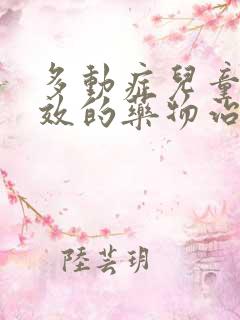 多動症兒童
效的藥物治
陸芸玥